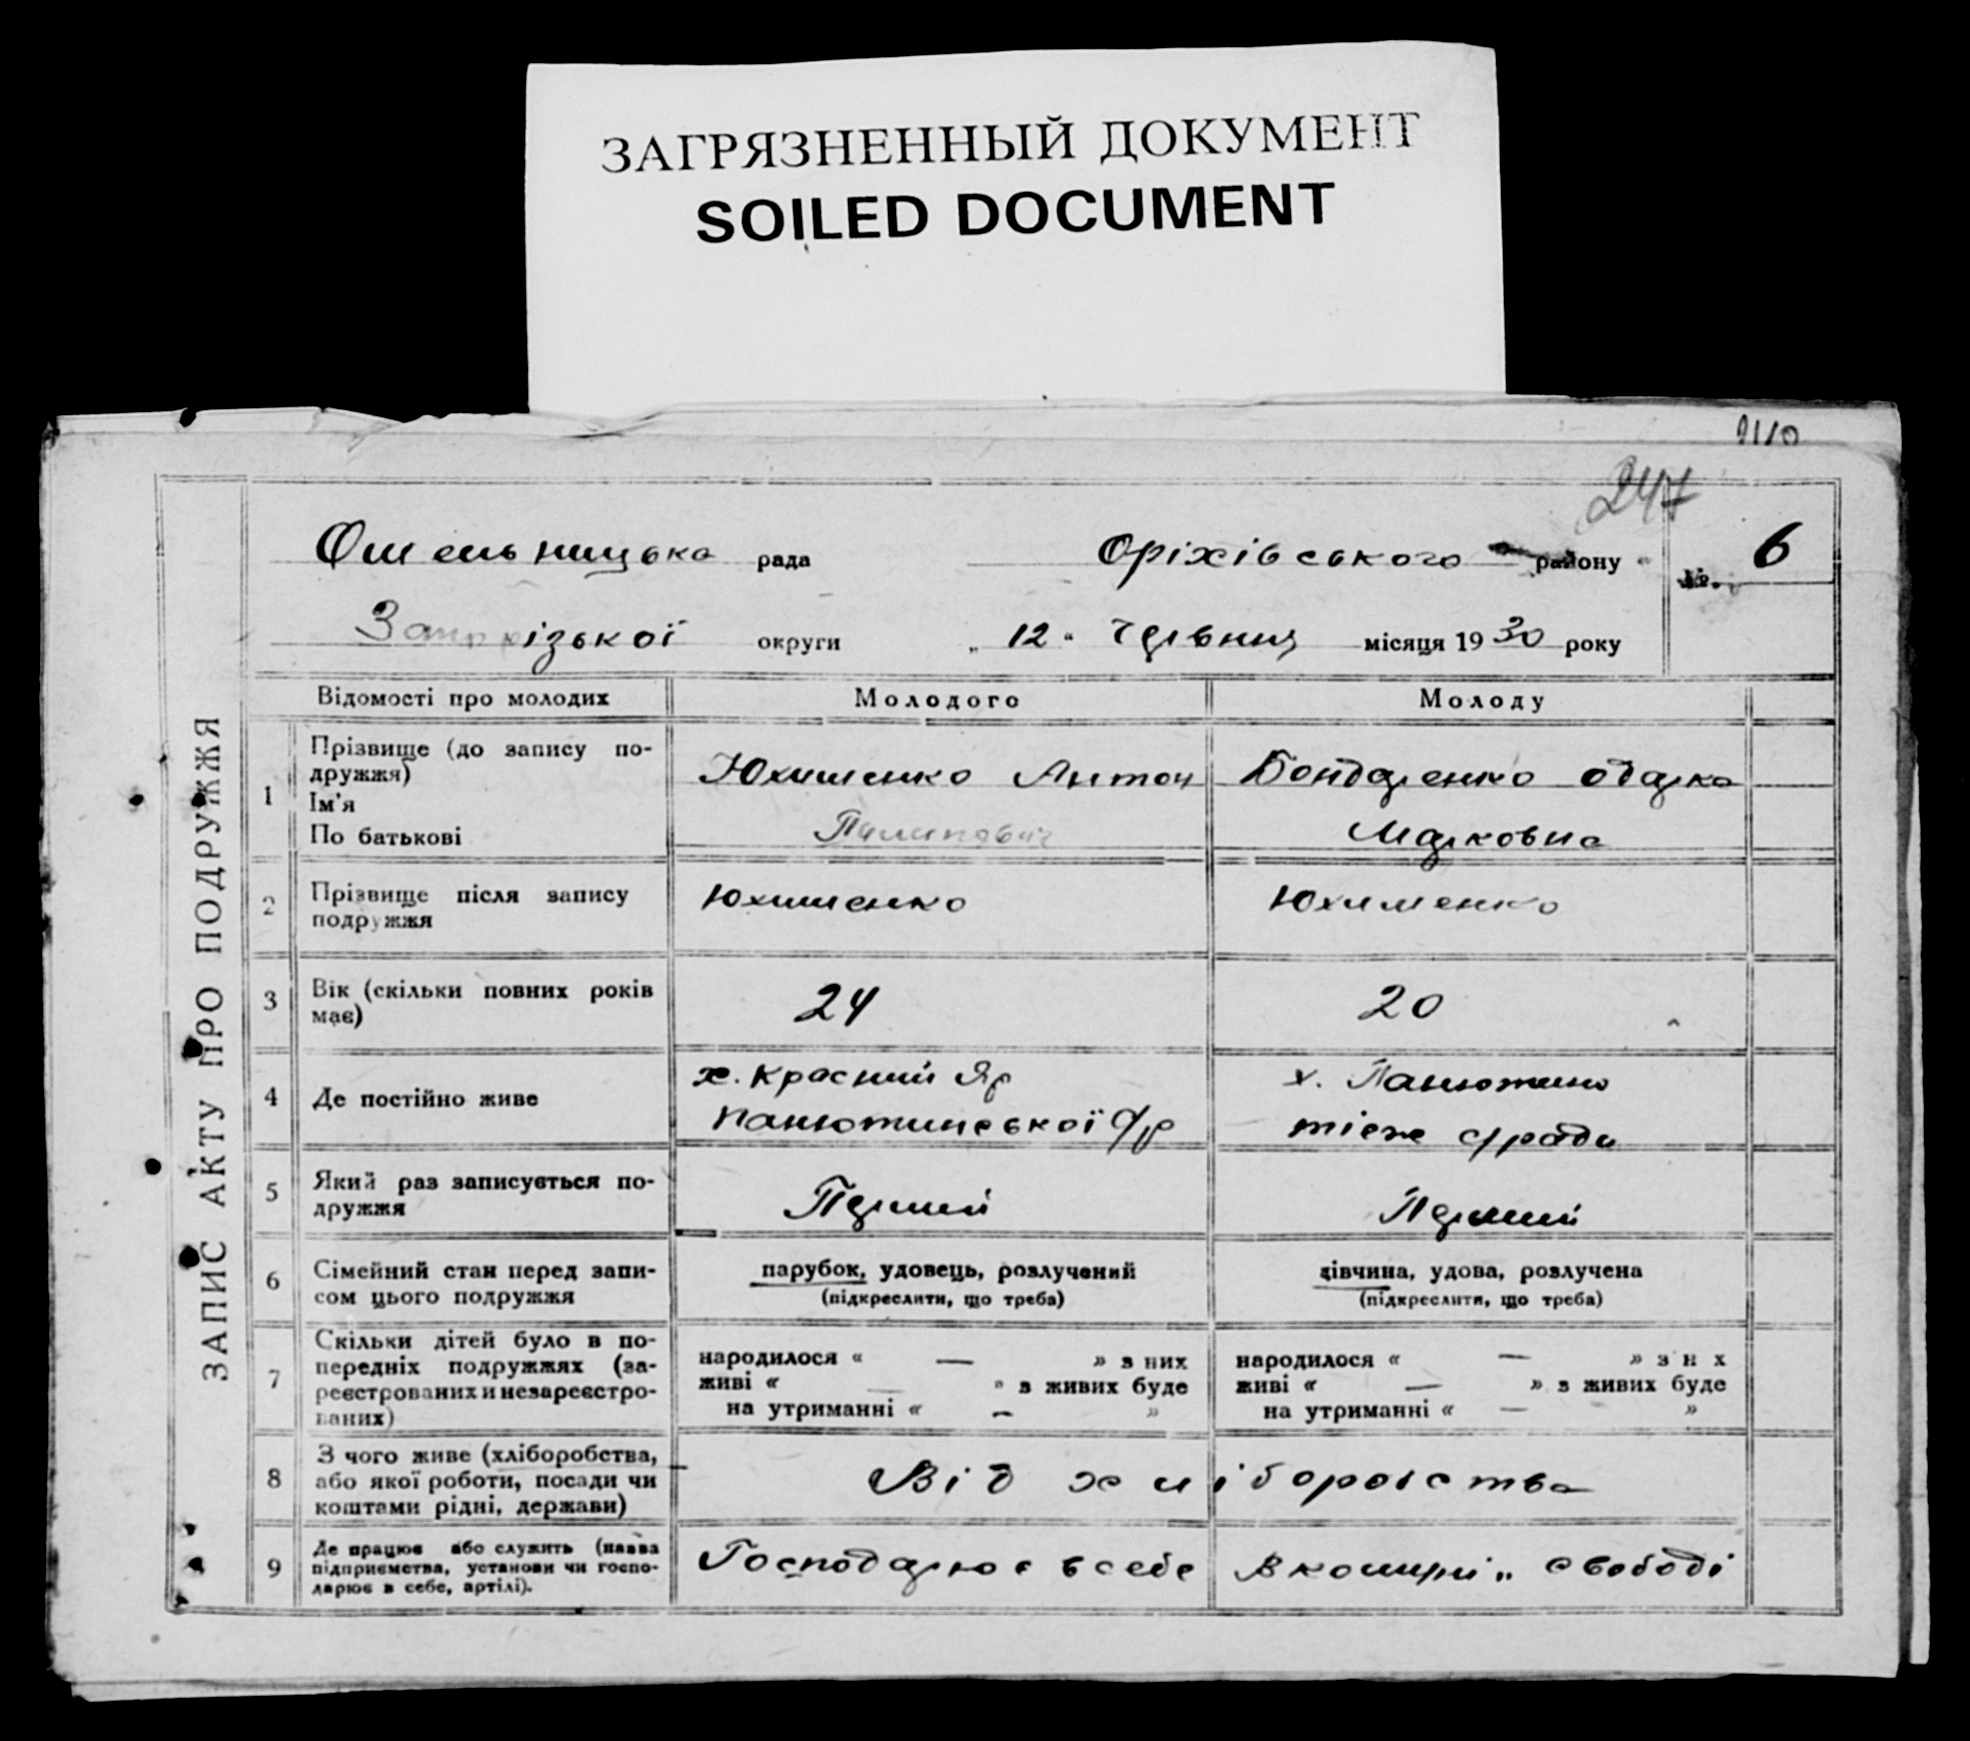 ЗАГРЯЗНЕННЫЙ ДОКУМЕНТ
SOILED DOCUMENT
247
Омельницька рада Оріхівського району № 6
Запорізької округи „ 12 " Червня місяця 1930 року
ЗАПИС АКТУ ПРО ПОДРУЖЖЯ
Відомості про молодих Молодого Молоду
1 Прізвище (до запису по-
дружжя)
Ім'я
По батькові
Юхименко Антон
Пилипович
Бондаренко Одарка
Марковна
2 Прізвище після запису
подружжя
Юхименко
Юхименко
3 Вік (скільки повних років
має)
24
20
4 Де постійно живе
х. Красний Яр
Панютинської с/р
х. Панютино
тієж с/ради
5 Який раз записується по-
дружжя
Перший
Перший
6 Сімейний стан перед запи-
сом цього подружжя
парубок, удовець, розлучений
(підкреслити, що треба)
дівчина, удова, розлучена
(підкреслити, що треба)
7 Скільки дітей було в по-
передніх подружжях (за-
реєстрованих и незареєстро-
ваних)
народилося « — » з них
живі « — » з живих буде
на утриманні « — »
народилося « — » з н х
живі « — » з живих буде
на утриманні « — »
8 З чого живе (хліборобства,
або якої роботи, посади чи
коштами рідні, держави)
Від хліборобства
9 Де працює або служить (назва
підприємства, установи чи госпо-
дарює в себе, артілі).
Господарює в себе
В комуні „ Свободі